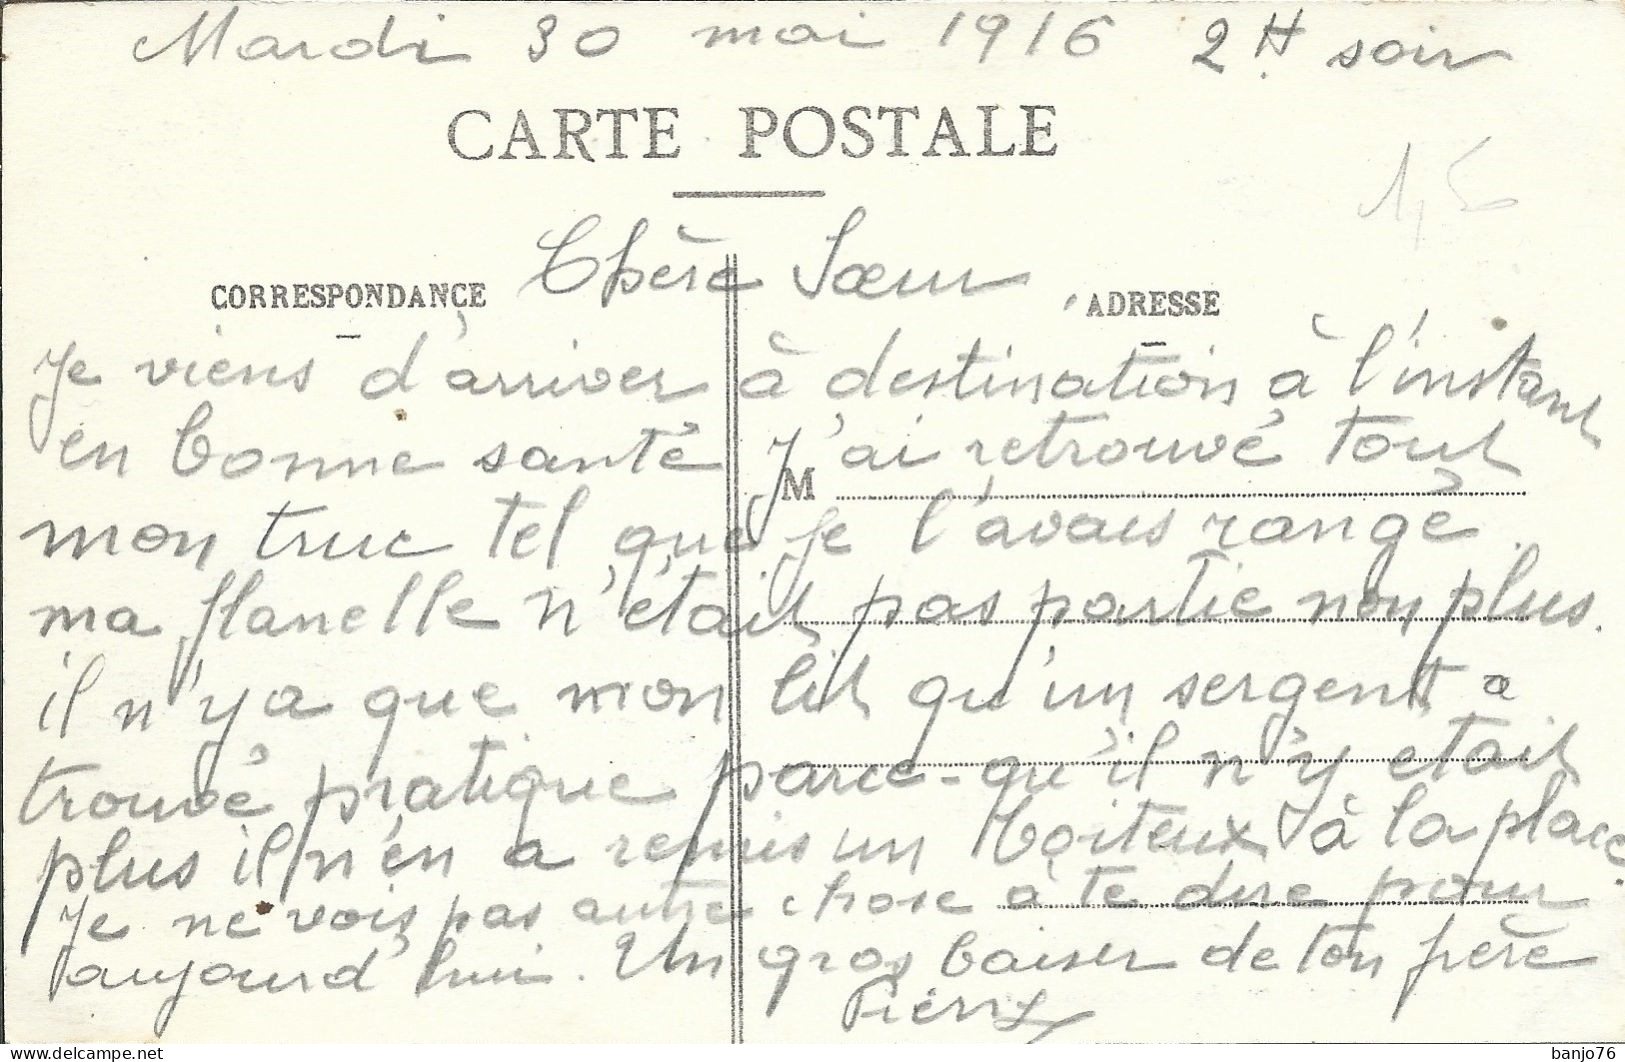 Mardi 30 mai 1916 2 H. soir
CARTE POSTALE
1,50
Chère Sœur
CORRESPONDANCE
ADRESSE
Je viens d'arriver à destination à l'instant
en bonne santé J'ai retrouvé tout
M
mon truc tel que je l'avais rangé.
ma flanelle n'était pas partie non plus.
il n'y a que mon lit qu'un sergent a
trouvé pratique parce-qu'il n'y etait
plus il n'en a remis un boiteux à la place.
Je ne vois pas autre chose à te dire pour
aujourd'hui. Un gros baiser de ton père
Pierre
delcampe.net
banjo76